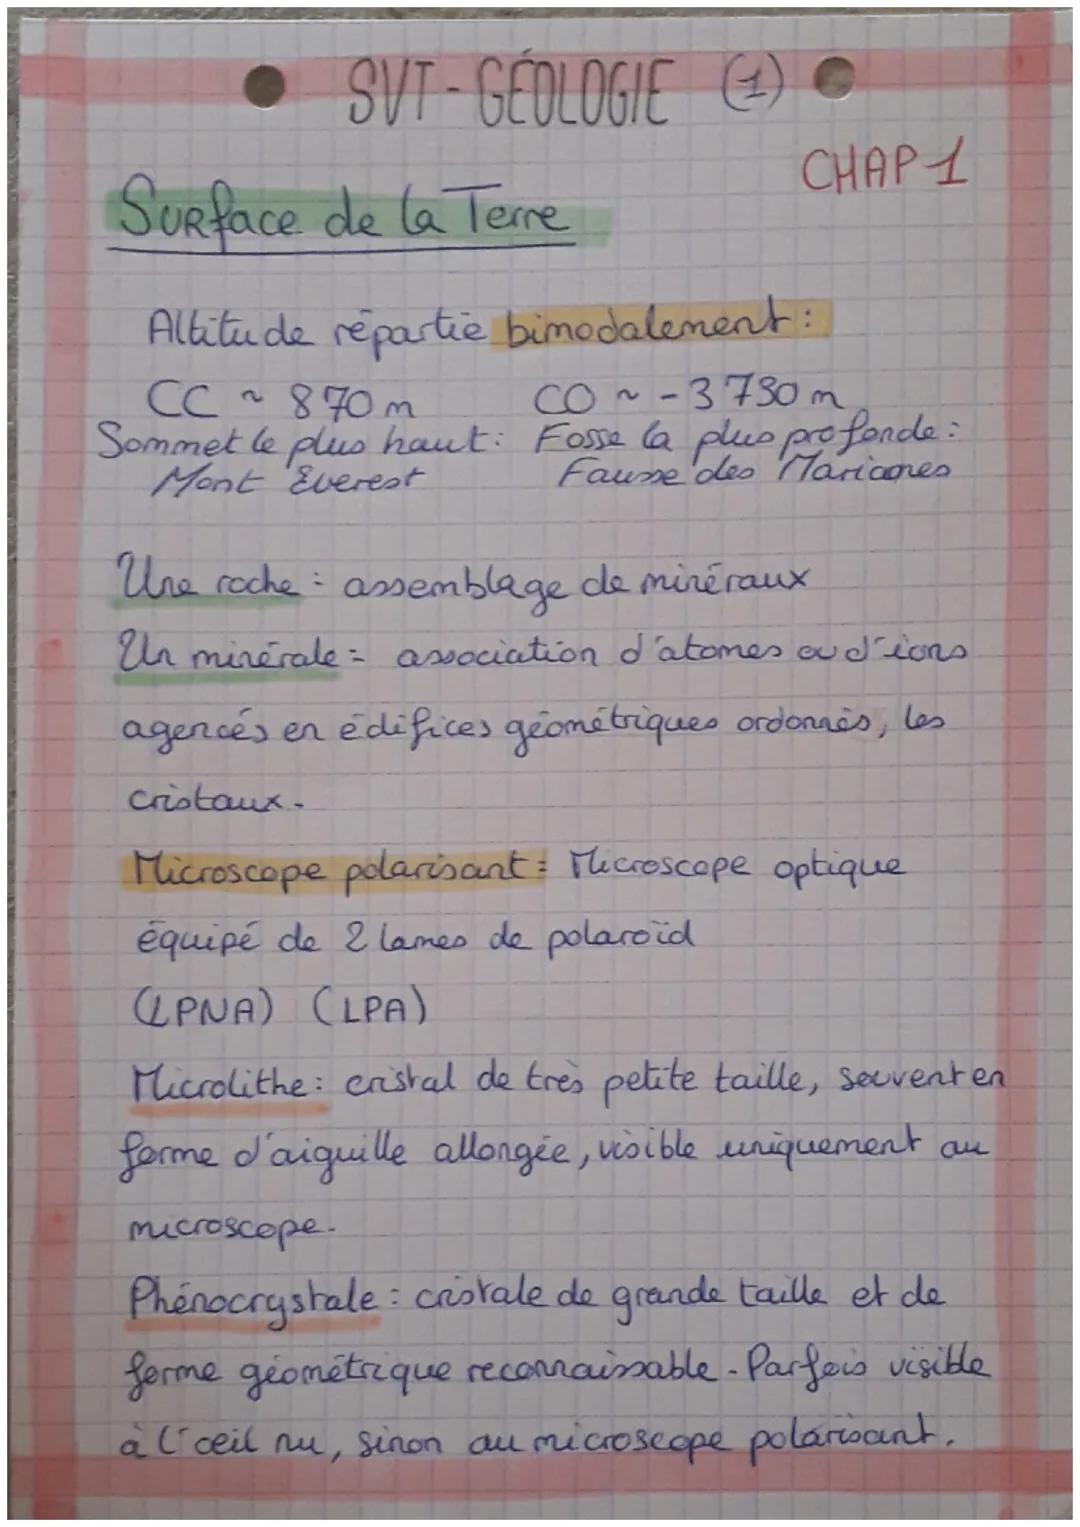 SVT - GÉOLOGIE (1)
CHAP 1
Surface de la Terre
Altitude répartie bimodalement :
CC ~ 870 m CO ~ - 3 730 m
Sommet le plus haut : Fosse la plus profonde :
Mont Everest Fausse des Marianes
Une roche : assemblage de minéraux
Un minérale = association d'atomes ou d'ions
agencés en édifices géométriques ordonnés, les
cristaux.
Microscope polarisant : Microscope optique
équipé de 2 lames de polaroïd
(LPNA) (LPA)
Microlithe : cristal de très petite taille, souvent en
forme d'aiguille allongée, visible uniquement au
microscope.
Phénocrystale : cristale de grande taille et de
forme géométrique reconnaissable. Parfois visible
à l'œil nu, sinon au microscope polarisant.